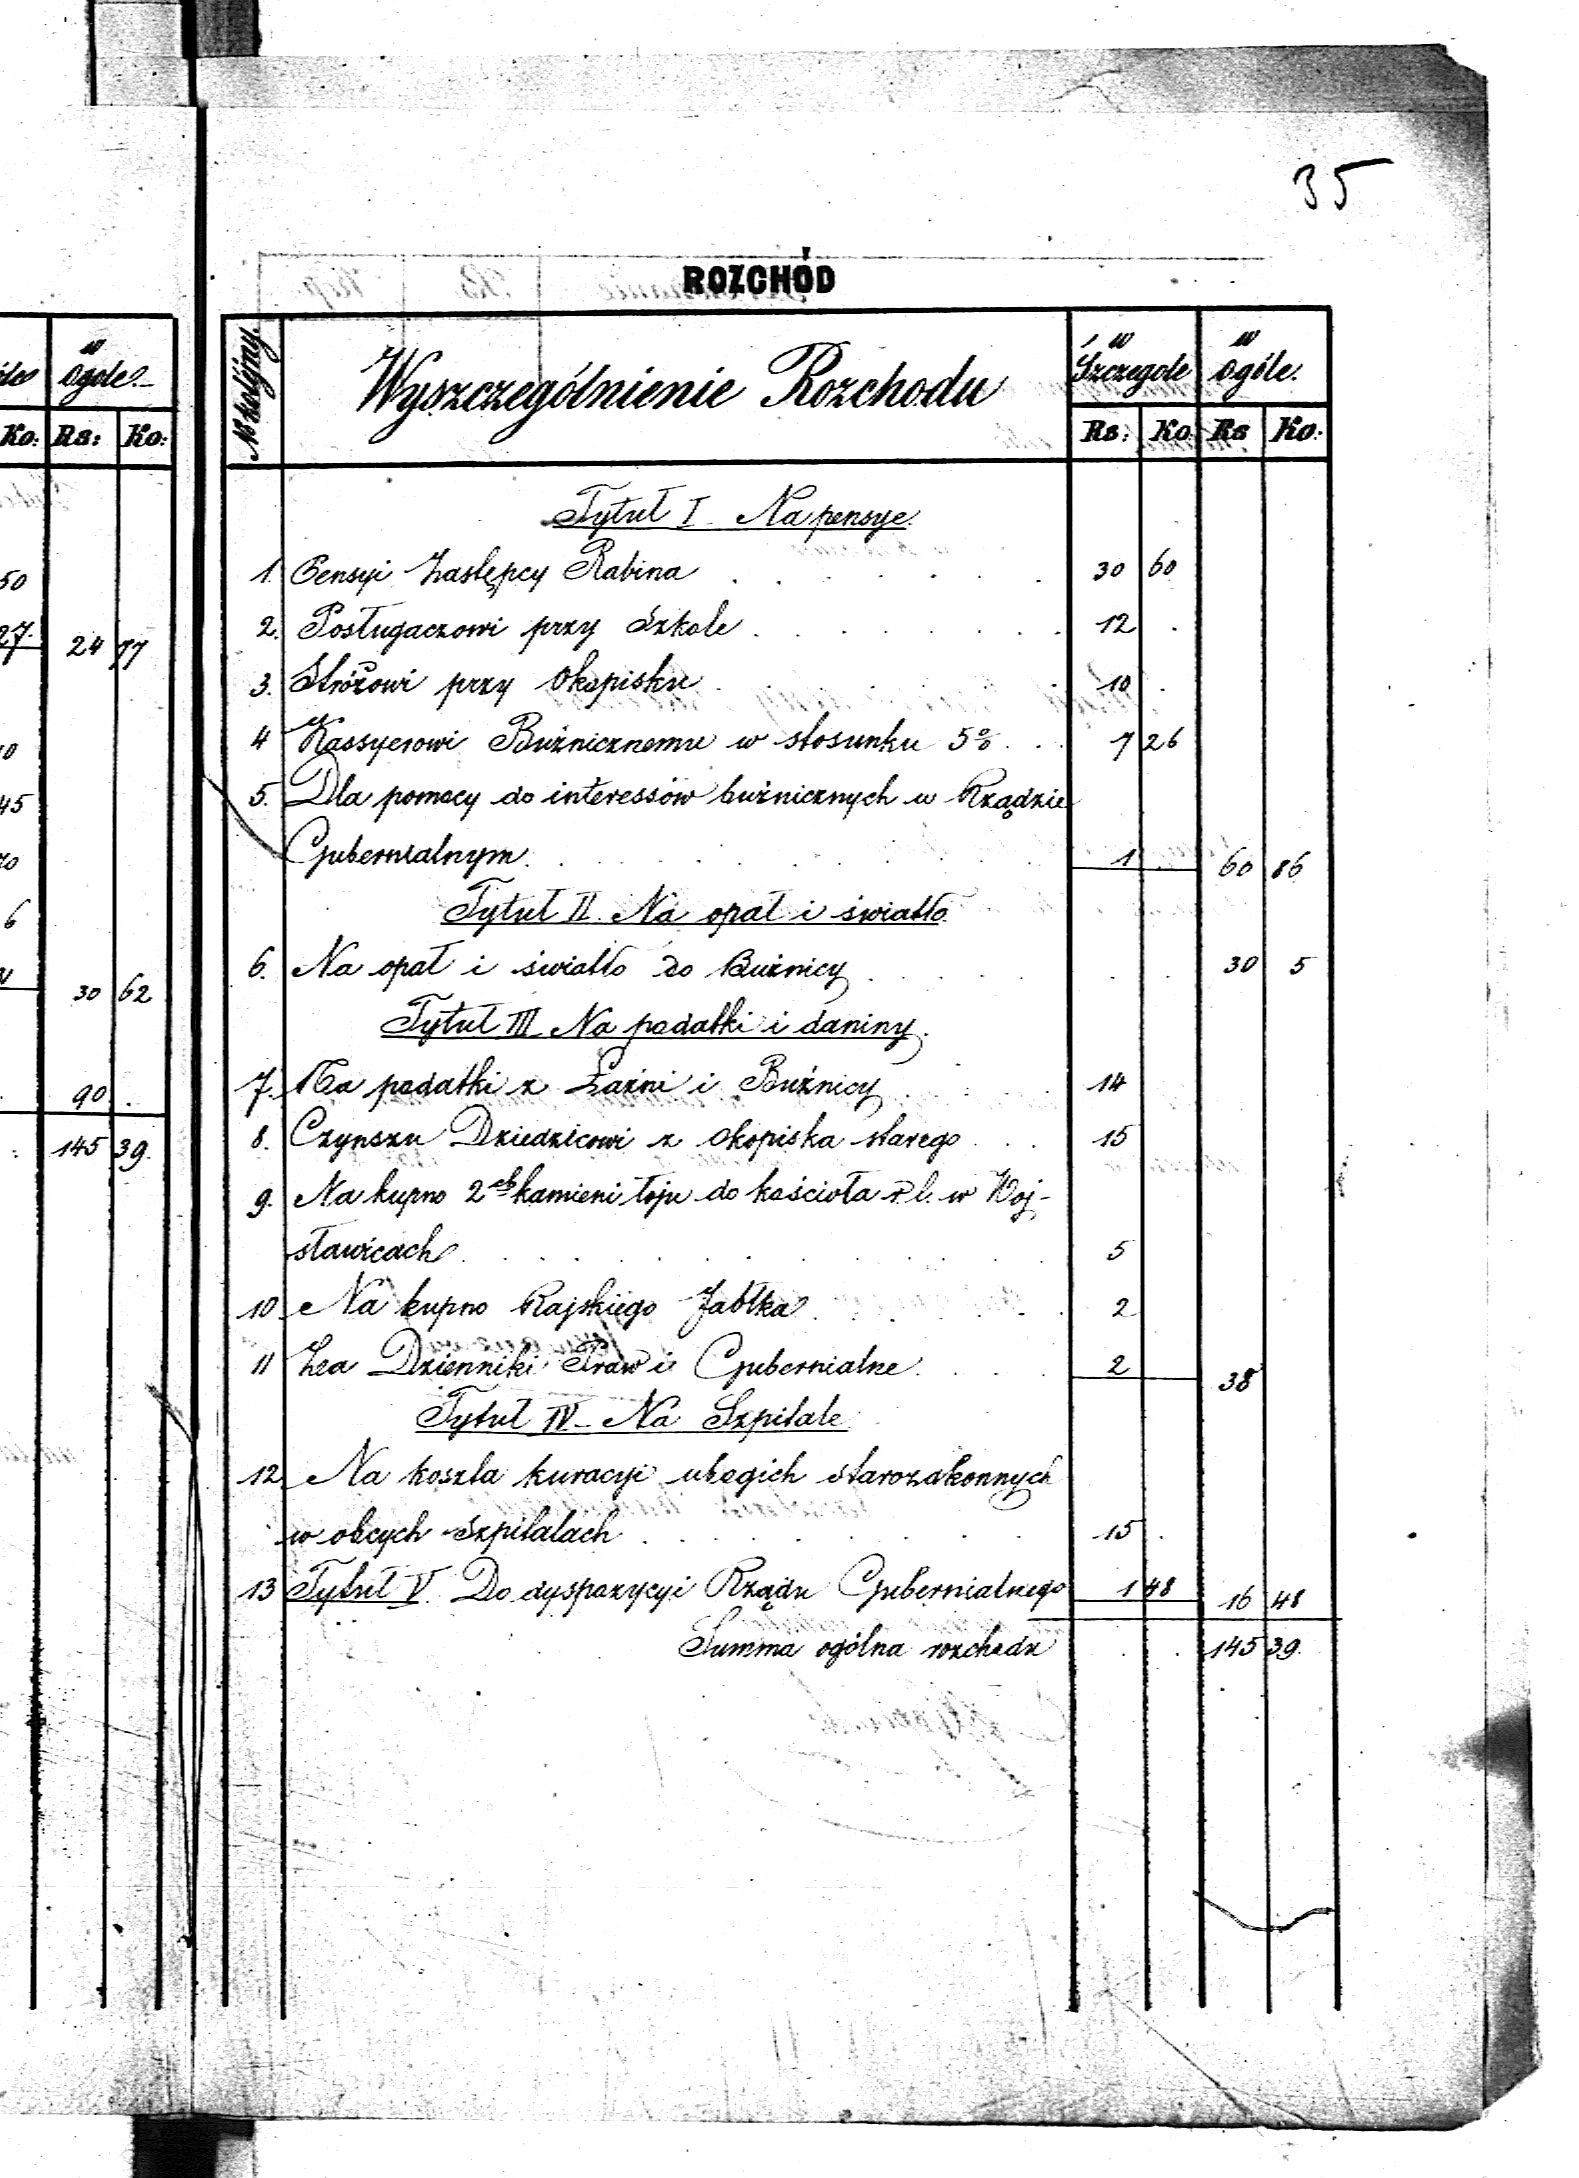 35
ROZCHÓD
ogole.
Ko: Rs: Ko:
50
27. 24 77
10
45
70
6
30 62
90 .
145 39.
№ kolejny. Wyszczególnienie Rozchodu w Szczegole w ogóle.
Rs: Ko Rs Ko:
Tytuł I Na pensye.
1. Pensyi Zastępcy Rabina 30 60
2. Posługaczowi przy Szkole 12 .
3. Stróżowi przy Okopisku 10 .
4 Kassyerowi Bużnicznemu w stosunku 5% 7 26
5. Dla pomocy do interessów bużnicznych w Rządzie
Gubernialnym 1 . 60 86
Tytuł II Na opał i światło
6. Na opał i światło do Bużnicy 30 5
Tytuł III Na podatki i daniny.
7. Na podatki z Łaźni i Bużnicy 14
8. Czynszu Dziedzicowi z okopiska starego 15
9. Na kupno 2ch kamieni łoju do kościoła r. l. w Woj-
sławicach 5
10 Na kupno Rajskiego Jabłka 2
11 Za Dzienniki Praw i Gubernialne 2 38
Tytuł IV Na Szpitale
12 Na koszta kuracyi ubogich starozakonnych
w obcych Szpitalach 15 .
13 Tytuł V. Do dyspozycyi Rządu Gubernialnego 1 48 16 48
Summa ogólna rozchodu . . 145 39.